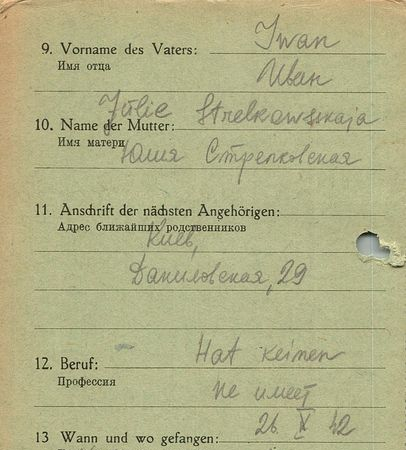 Iwan
9. Vorname des Vaters:
Имя отца
Иван
Julie Strelkowskaja
10. Name der Mutter:
Имя матери
Юлия Стрелковская
11. Anschrift der nächsten Angehörigen:
Адрес ближайших родственников
Киев,
Даниловская, 29
Hat keinen
12. Beruf:
Профессия
не имеет
26. X 42
13 Wann und wo gefangen: